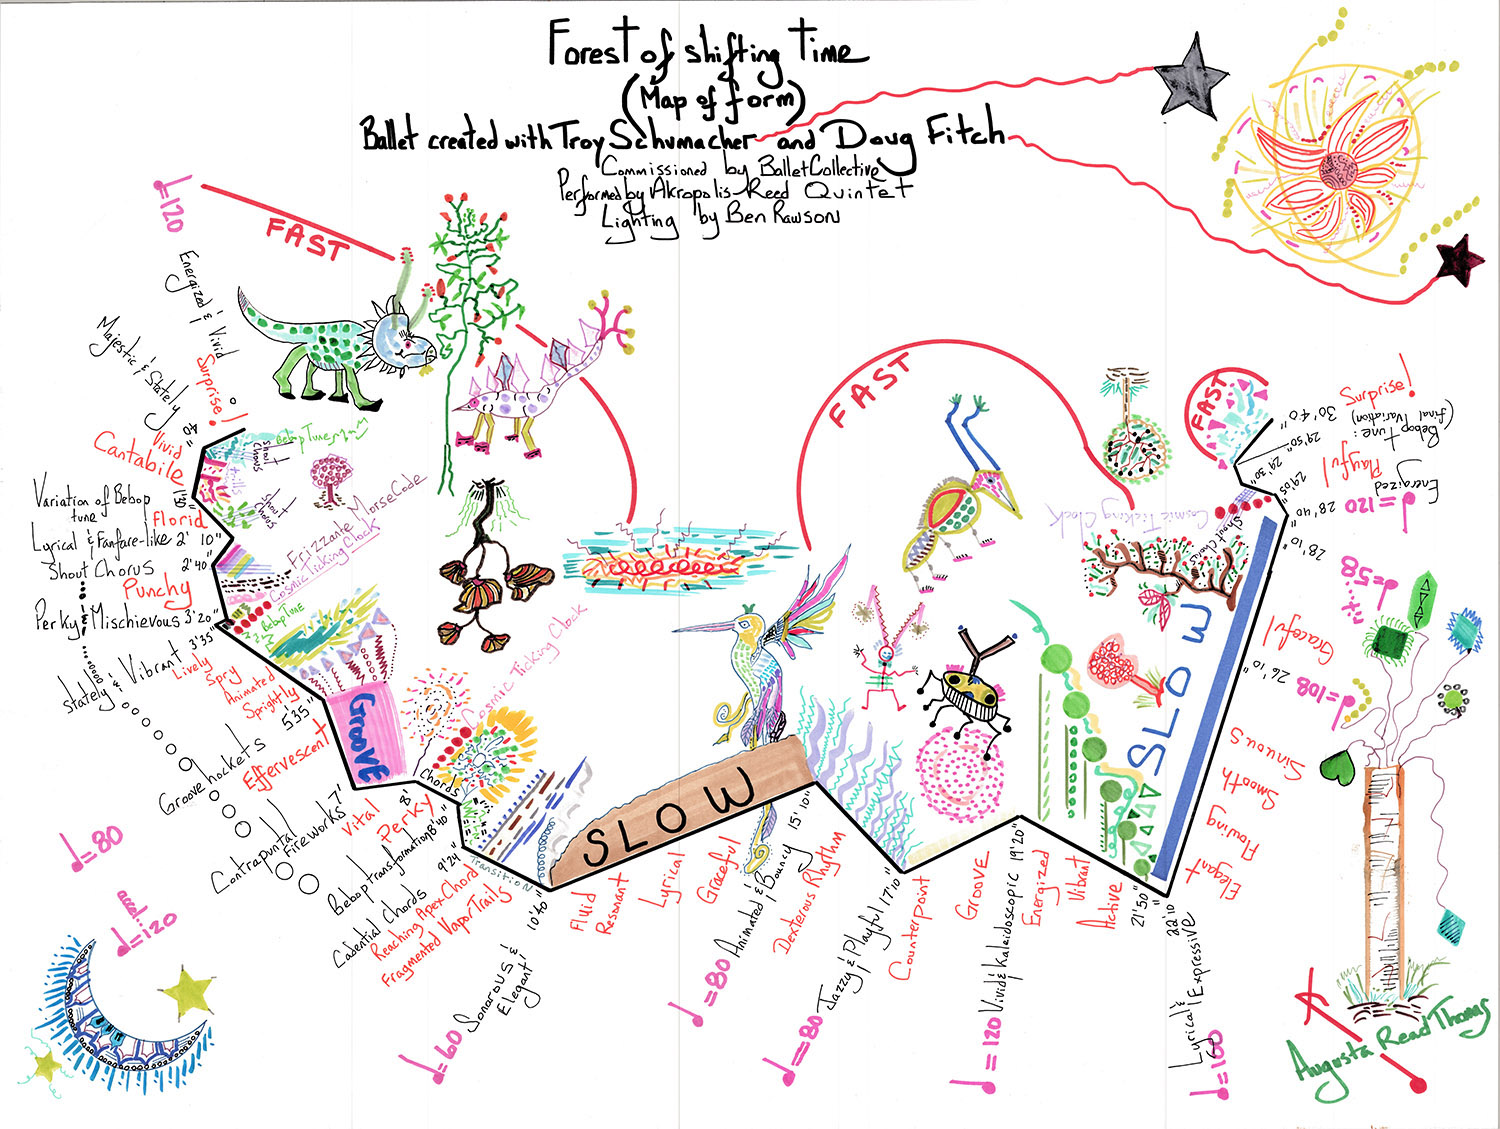 Forest of shifting Time
(Map of form)
Ballet created with Troy Schumacher and Doug Fitch
Commissioned by BalletCollective
Performed by Akropolis Reed Quintet
Lighting by Ben Rawson
♩=120
FAST
Energized & Vivid
Surprise!
Majestic & Stately
40"
Vivid
Cantabile
1'50"
Variation of Bebop
tune
Florid
Lyrical & Fanfare-like 2' 10"
Shout Chorus
2'40"
Punchy
Perky & Mischievous 3'20"
3'35"
Vibrant
Stately
Lively
Spry
Animated
Sprightly
5'35"
Effervescent
Groove hockets
Contrapuntal
Fireworks 7'
Vital
8'
Perky
Bebop transformation 8'40"
Cadential Chords 9'24"
Reaching Apex Chord
Fragmented Vapor Trails
♩=80
accel.
♩=120
Bebop Tune
Shout
Chorus
Trills
Shout
Chorus
Morse Code
Frizzante
Cosmic Ticking Clock
Bebop Tune
GROOVE
Chords
Cosmic Ticking Clock
Transition
10'40"
Sonorous &
Elegant
♩=60
SLOW
Fluid
Resonant
Lyrical
Graceful
♩=80 Animated & Bouncy 15' 10"
Dexterous Rhythm
♩=80 Jazzy & Playful 17'10"
Counterpoint
GROOVE
♩=120 Vivid & Kaleidoscopic 19'20"
Energized
Vibrant
Active
21'50"
22'10
Lyrical & Expressive
♩=100
FAST
Cosmic Ticking Clock
Shout Chorus
SLOW
Elegant
Flowing
Smooth
Sinuous
♩=108
26'10"
Graceful
♩=58
28'10"
28'40"
29'05"
29'30"
29'50"
30'40"
FAST
♩=120
Energized
Playful
Bebop Tune:
(final Variation)
Surprise!
Augusta Read Thomas